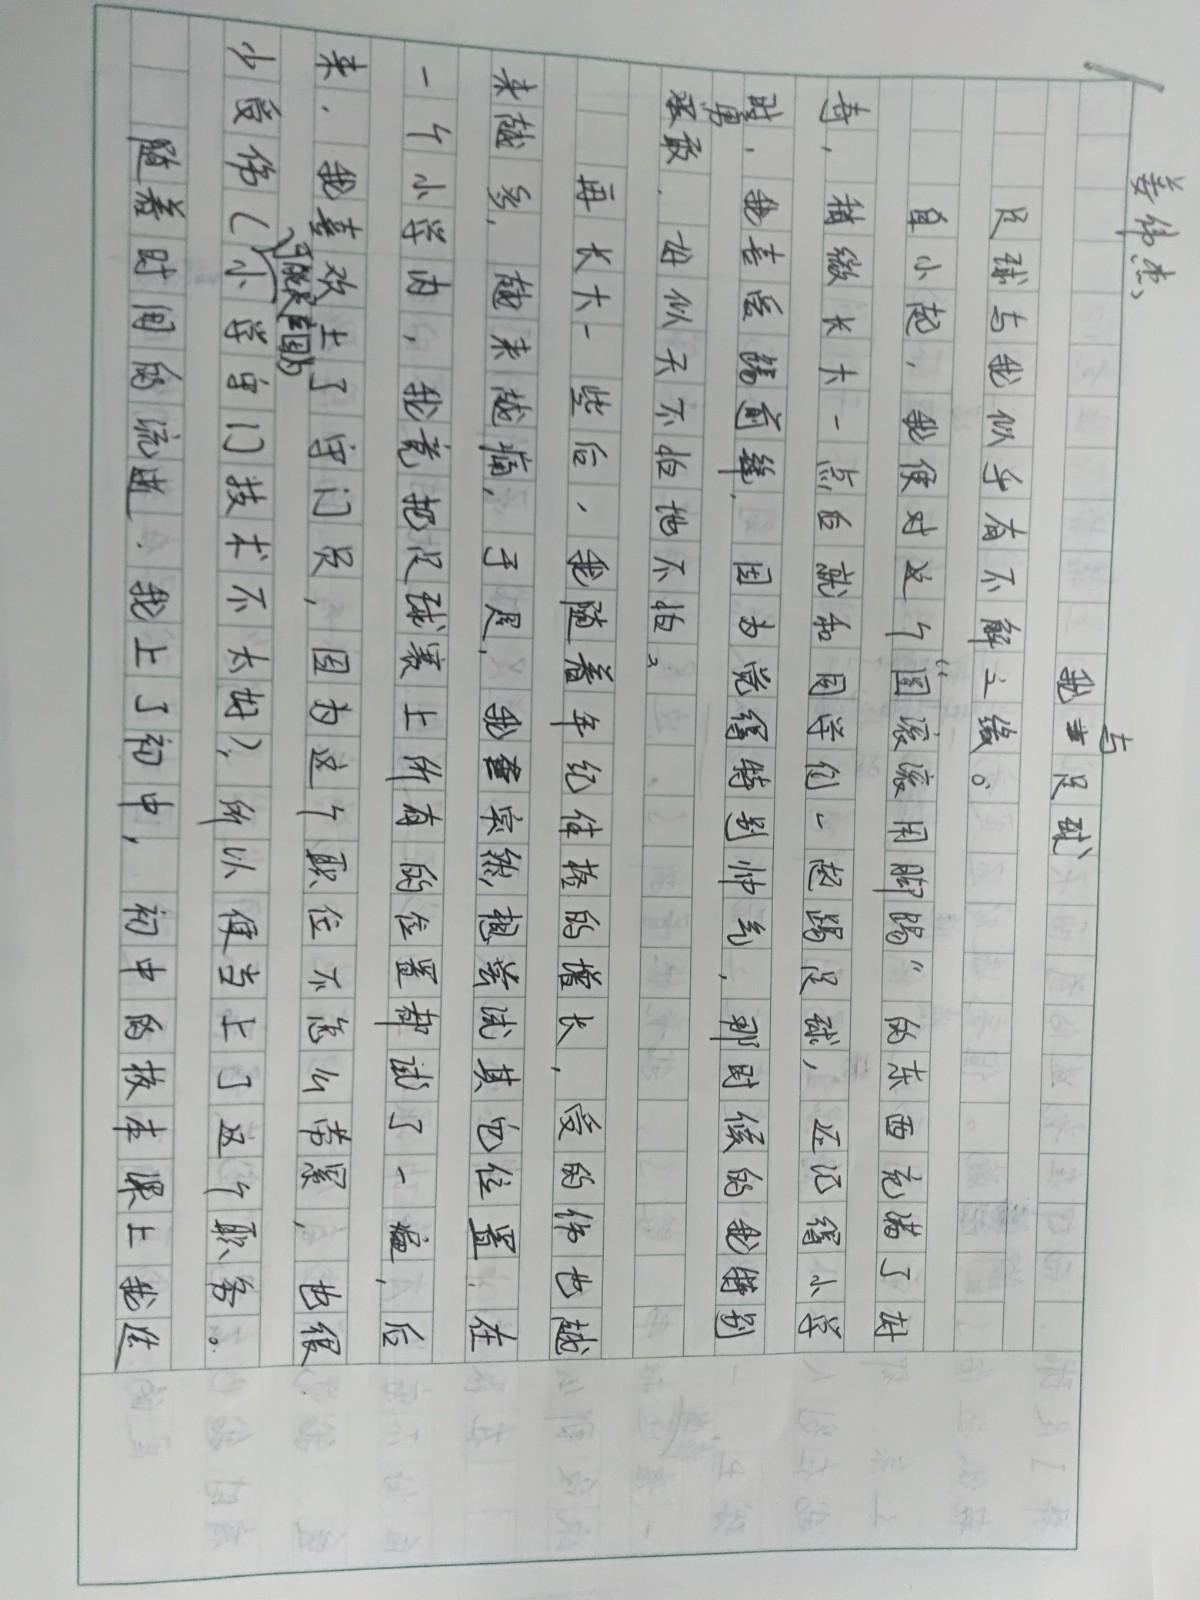 姜伟杰
我与足球
足球与我似乎有不解之缘。
自小起，我便对这个“圆滚滚用脚踢”的东西充满了好
奇，稍微长大一点后就和同学们一起踢足球，还记得小学
时，我喜爱踢前锋，因为觉得特别帅气，那时候的我特别
勇敢，好似天不怕地不怕。
再长大一些后，我随着年纪体格的增长，受的伤也越
来越多，越来越痛，于是，我突然想尝试其它位置，在
一个小学内，我竟把足球赛上所有的位置都试了一遍，后
来，我喜欢上了守门员，因为这个职位不怎么劳累，也很
少受伤（可能是因为小学守门技术不太好），所以便当上了这个职务。
随着时间的流逝，我上了初中，初中的校本课上我选